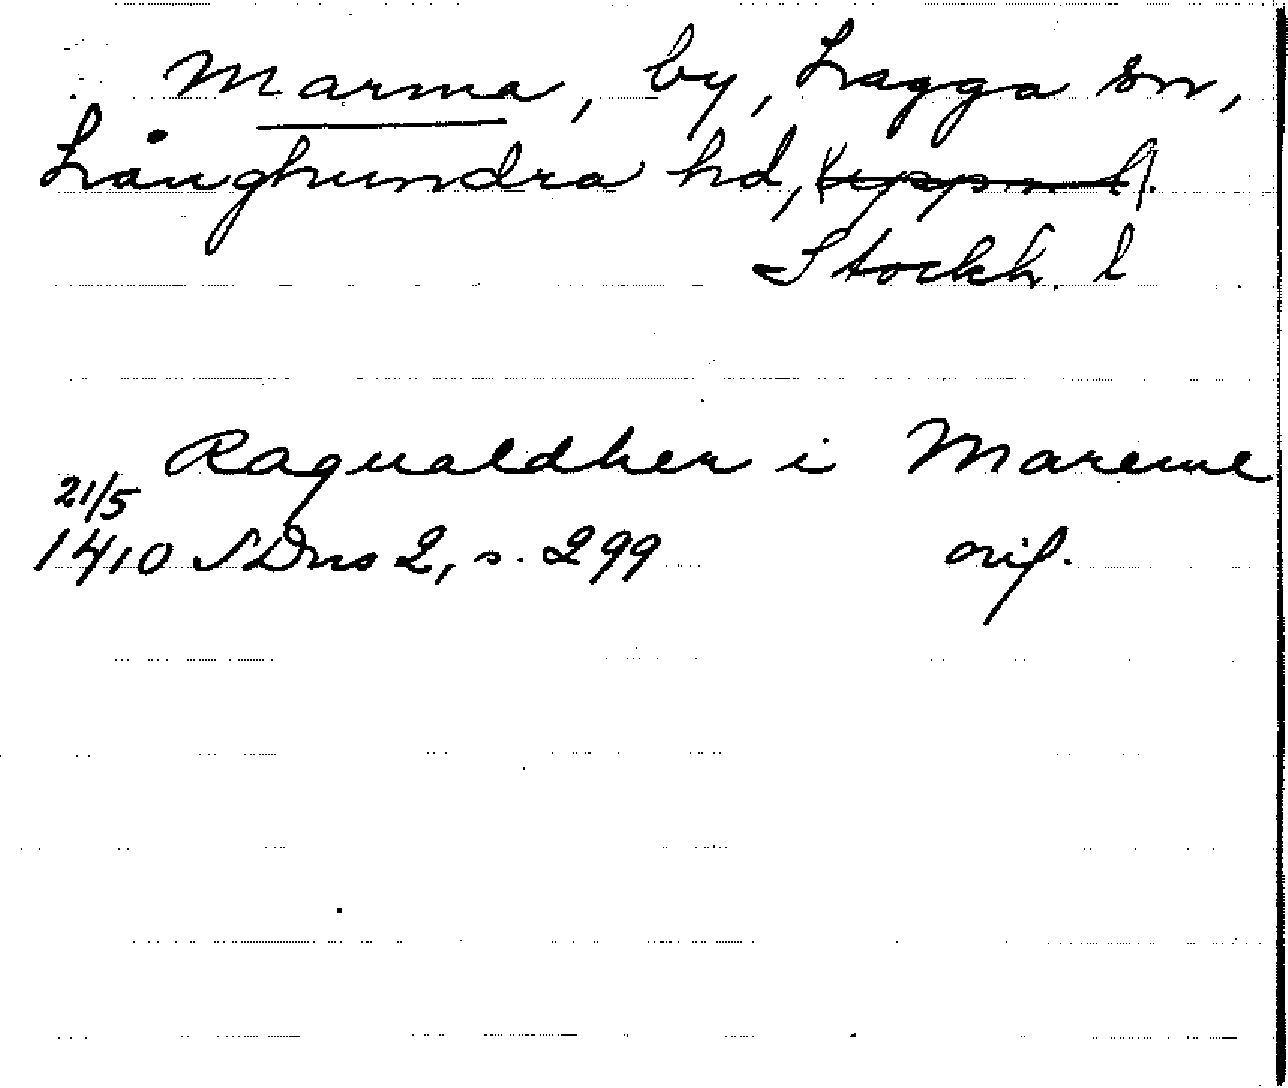 Marma, by, Lagga sn,
Långhundra hd, (Upps. l).
Stockh. l
Ragualdher i Mareme
21/5
1410 SDns 2, s. 299 orig.